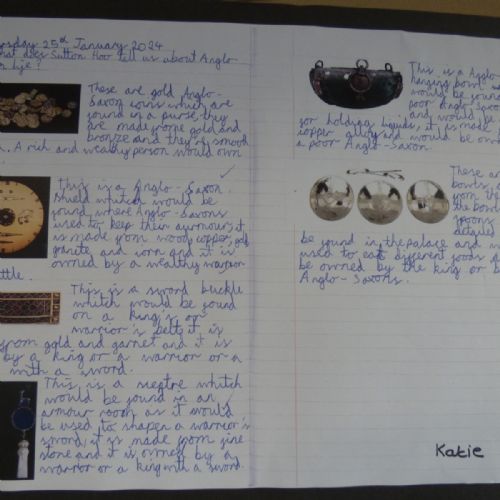 sday 25th January 2024
hat does Sutton Hoo tell us about Anglo-
n life?
These are gold Anglo-
Saxon coins which are
found in a purse, they
are made frome gold and
bronze and they're smooth
A rich and wealthy person would own
This is a Anglo-Saxon
shield whitch would be
found where Anglo-Saxons
used to keep their ayrmour, it
is made from wood, copper, gold
granite and iorn and it is
owned by a wealthy warrior
ttle.
This is a sword buckle
whitch would be found
on a king's or
warrior's belt, it is
from gold and garnet and it is
by a king or a warrior or a
with a sword.
This is a sieptre whitch
would be found in an
armour room as it would
be used to sharpen a warrior's
sword, it is made from fine
stone and it is owned by a
warror or a king with a sword.
This is a Anglo
hanging bowl w
would be foun
poor Anglo-Saxon
and would be
for holding liquids, it is made
copper alloy and would be owne
a poor Anglo-Saxon.
These ar
bowls,
from the
the bowl
spoons
detailed
be found in the palace and
used to eat different foods
be owned by the king or
Anglo-Saxons.
Katie